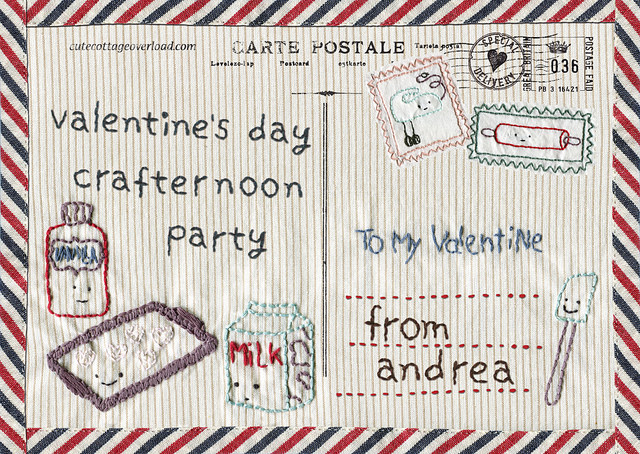 cutecottageoverload.com
CARTE POSTALE
Levelezo-lap
Postcard
SPECIAL
DELIVERY
GREAT BRITAIN
036
PB 3 18421
POSTAGE PAID
valentine's day
crafternoon
party
VANILLA
MILK
To My Valentine
from
andrea